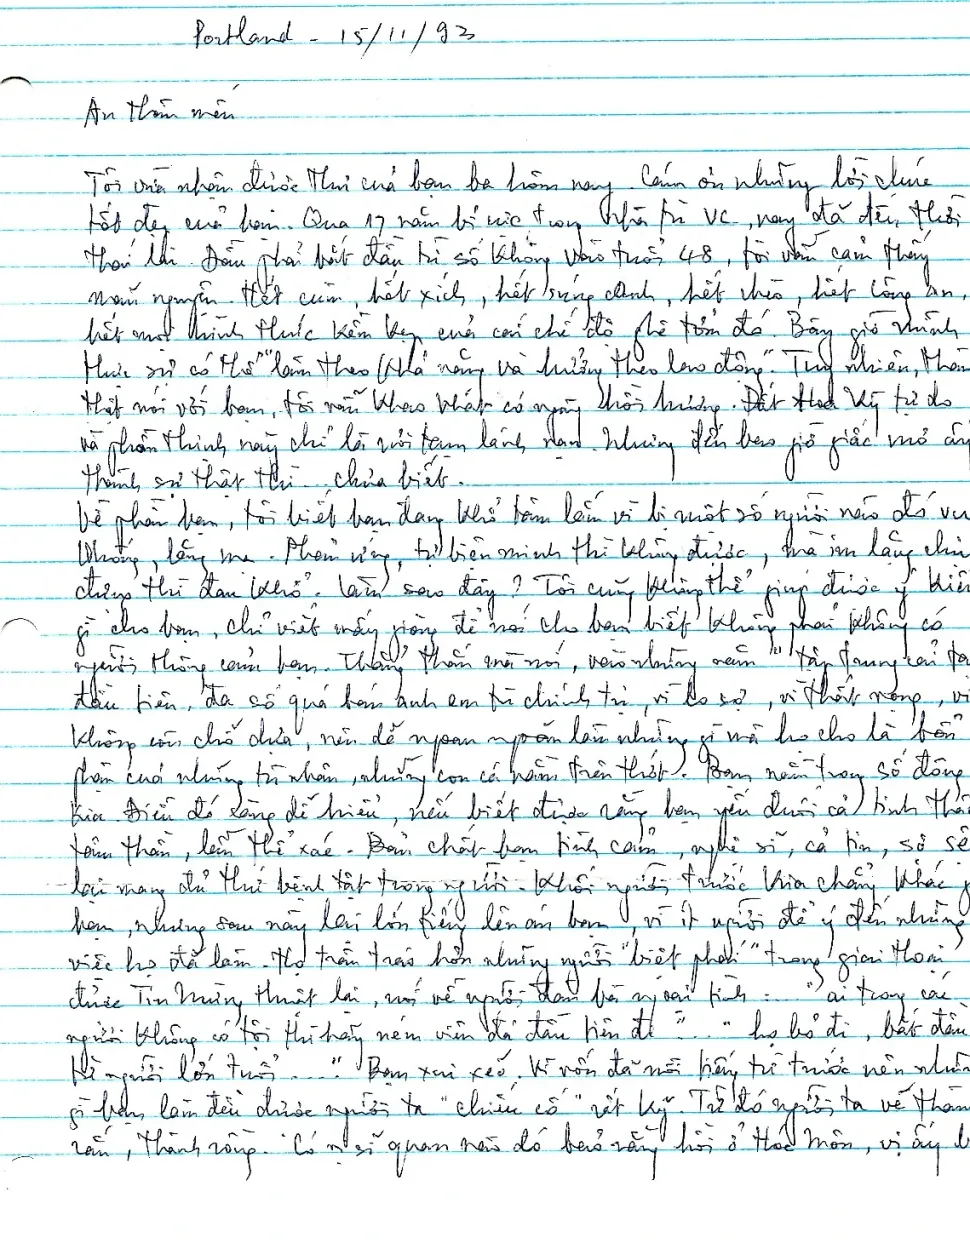 Portland - 15/11/93
An thân mến
Tôi vừa nhận được thư của bạn ba hôm nay. Cám ơn những lời chúc
tốt đẹp của bạn. Qua 17 năm bị nhốt trong nhà tù VC, nay đã đến thời
thơi lơi. Dẫu phải bắt đầu từ số không vào tuổi 48, tôi vẫn cảm thấy
mãn nguyện. Hết cùm, hết xích, hết súng đạn, hết chèo, hết công an,
hết mọi hình thức kềm kẹp của cái chế độ ghê tởm đó. Bây giờ mình
thực sự có thể "làm theo khả năng và hưởng theo lao động". Tuy nhiên, thành
thật nói với bạn, tôi vẫn khao khát có ngày hồi hương. Đất Hoa Kỳ tự do
và phồn thịnh này chỉ là nơi tạm lánh nạn. Nhưng đến bao giờ giấc mơ ấy
thành sự thật thì... chưa biết.
Về phần bạn, tôi biết bạn đang khổ tâm lắm vì bị một số người nào đó vu
khống, lăng mạ. Phản ứng, tự biện minh thì không được, mà im lặng chịu
đựng thì đau khổ. Làm sao đây? Tôi cũng không thể giúp được ý kiến
gì cho bạn, chỉ viết mấy giòng để nói cho bạn biết không phải không có
người thông cảm bạn. Thẳng thắn mà nói, vào những năm "tập trung cải tạ
đầu tiên, đa số quá bán anh em tù chính trị, vì lo sợ, vì thất vọng, vì
không còn chỗ dựa, nên dễ ngoan ngoãn làm những gì mà họ cho là bổn
phận của những tù nhân, những con cá nằm trên thớt. Bạn nằm trong số đông
kia. Điều đó càng dễ hiểu, nếu biết được rằng bạn yếu đuối cả tinh thần
tâm thần, lẫn thể xác. Bản chất bạn tình cảm, nghệ sĩ, cả tin, sợ sệ
lại mang đủ thứ bệnh tật trong người. Khối người trước kia chẳng khác g
bạn, nhưng sau này lại lớn tiếng lên án bạn, vì ít người để ý đến những
việc họ đã làm. Họ trân tráo hơn những người "biệt phái" trong giai thoại
được Tin Mừng thuật lại, nói về người đàn bà ngoại tình: "ai trong các
người không có tội thì hãy ném viên đá đầu tiên đi"... "họ bỏ đi, bắt đầu
từ người lớn tuổi..." Bạn xui xẻo. Vì vốn đã nổi tiếng từ trước nên những
gì bạn làm đều được người ta "chiếu cố" rất kỹ. Từ đó người ta vẽ thành
rắn, thành rồng. Có sĩ quan nào đó bảo rằng hồi ở Hóc Môn, vị ấy b